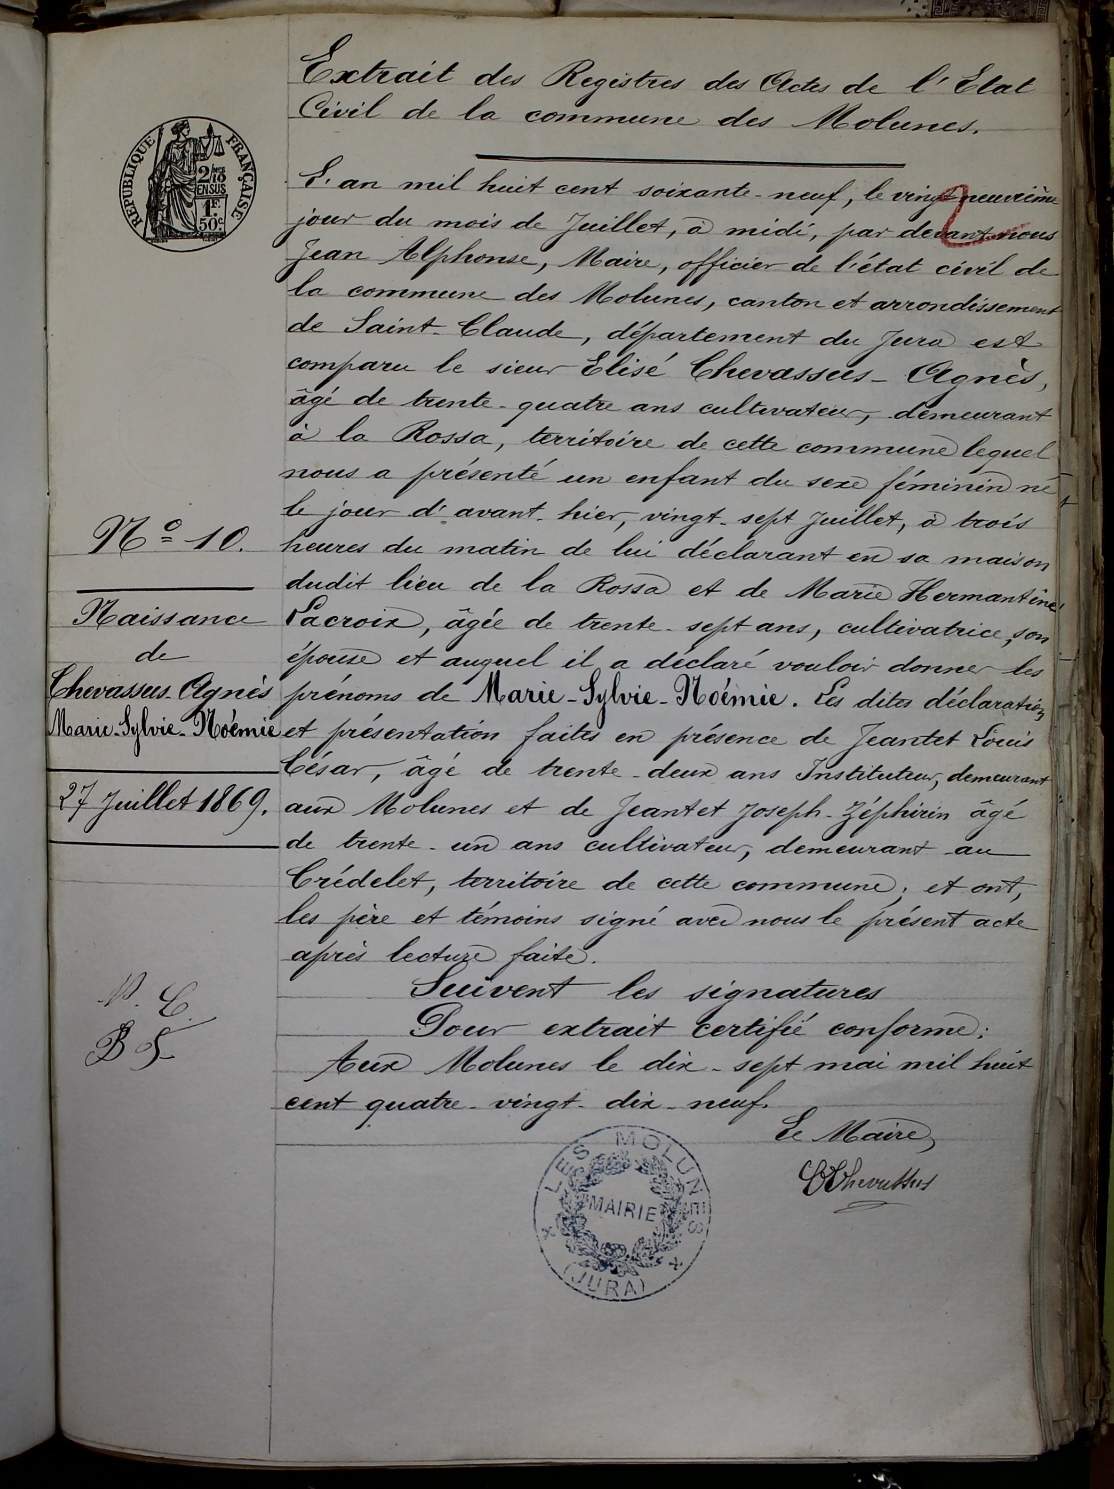 Extrait des Registres des Actes de l'Etat
Civil de la commune des Molunes.
RÉPUBLIQUE FRANÇAISE
2/10
EN SUS
1F.
50c.
L'an mil huit cent soixante-neuf, le vingt neuvième
jour du mois de Juillet, à midi, par devant nous
Jean Alphonse, Maire, officier de l'état civil de
la commune des Molunes, canton et arrondissement
de Saint-Claude, département du Jura est
comparu le sieur Elisé Chevassus-Agnès,
âgé de trente-quatre ans cultivateur, demeurant
à la Rossa, territoire de cette commune lequel
nous a présenté un enfant du sexe féminin né
le jour d'avant-hier, vingt-sept Juillet, à trois
heures du matin de lui déclarant en sa maison
dudit lieu de la Rossa et de Marie Hermantine
Lacroix, âgée de trente-sept ans, cultivatrice, son
épouse et auquel il a déclaré vouloir donner les
prénoms de Marie-Sylvie-Noémie. Les dites déclaration
et présentation faites en présence de Jeantet Louis
César, âgé de trente-deux ans Instituteur, demeurant
aux Molunes et de Jeantet Joseph-Zéphirin âgé
de trente-un ans cultivateur, demeurant au
Crédelet, territoire de cette commune; et ont,
les père et témoins signé avec nous le présent acte
après lecture faite.
Suivent les signatures
Pour extrait certifié conforme:
Aux Molunes le dix-sept mai mil huit
cent quatre-vingt-dix-neuf.
Le Maire,
Chevassus
N° 10.
Naissance
de
Chevassus-Agnès
Marie-Sylvie-Noémie
27 Juillet 1869.
LES MOLUNES
MAIRIE
(JURA)